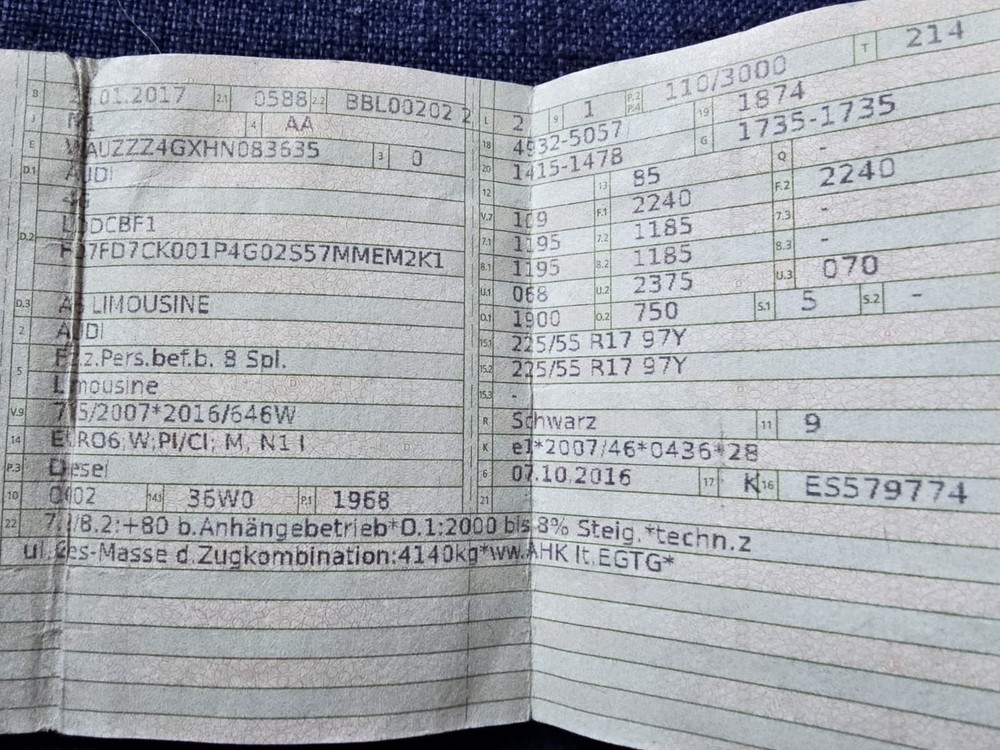 B .01.2017 2.1 0588 2.2 BBL00202 2
J M1 4 AA
E WAUZZZ4GXHN083635 3 0
D.1 AUDI
4G
D.2 DCBF1
7FD7CK001P4G02S57MMEM2K1
D.3 A6 LIMOUSINE
2 AUDI
5 Fz.z.Pers.bef.b. 8 Spl.
Limousine
V.9 715/2007*2016/646W
14 EURO6;W;PI/CI; M, N1 I
P.3 Diesel
10 0002 14.1 36W0 P.1 1968
L 2 9 1 P.2 P.4 110/3000 T 214
18 4932-5057 19 1874
20 1415-1478 G 1735-1735
12 13 85 Q -
V.7 109 F.1 2240 F.2 2240
7.1 1195 7.2 1185 7.3 -
8.1 1195 8.2 1185 8.3 -
U.1 068 U.2 2375 U.3 070
O.1 1900 O.2 750 S.1 5 S.2 -
15.1 225/55 R17 97Y
15.2 225/55 R17 97Y
15.3 -
R Schwarz 11 9
K e1*2007/46*0436*28
6 07.10.2016 17 K 16 ES579774
21
22 7./8.2:+80 b.Anhängebetrieb*O.1:2000 bis 8% Steig.*techn.z
ul.Ges-Masse d.Zugkombination:4140kg*ww.AHK lt.EGTG*